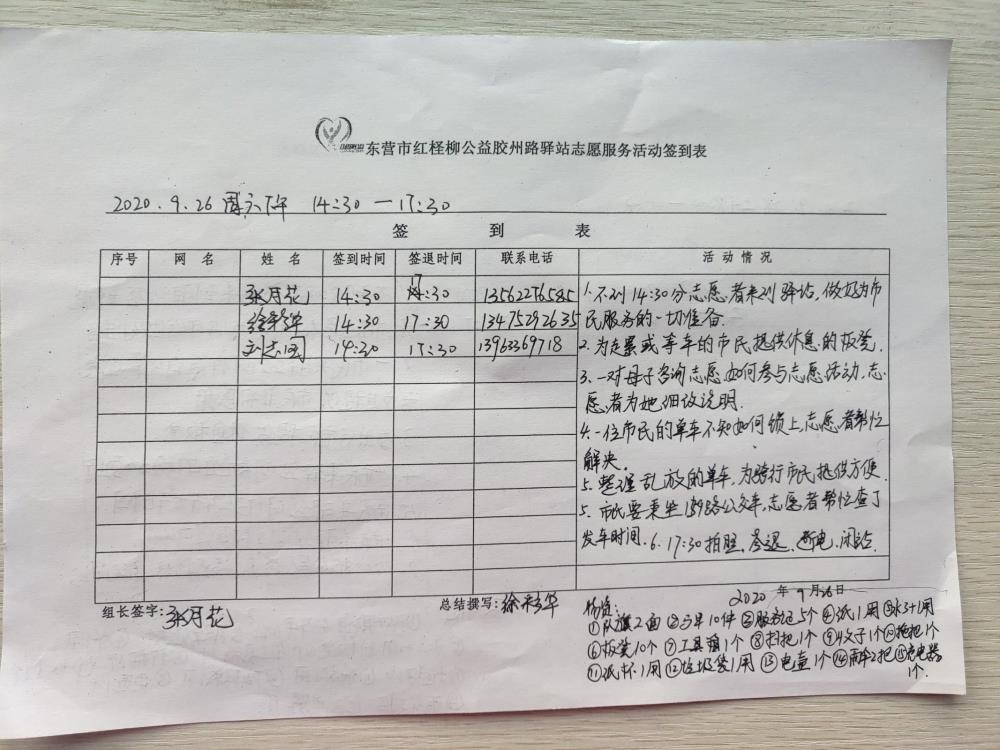 东营市红柽柳公益胶州路驿站志愿服务活动签到表
2020.9.26 周六下午 14:30—17:30
签 到 表
序号 网 名 姓 名 签到时间 签退时间 联系电话 活 动 情 况
张月花 14:30 17:30 13562276585
徐彩华 14:30 17:30 13475292635
刘志国 14:30 17:30 13963369718
1.不到14:30分志愿者来到驿站,做好为市
民服务的一切准备.
2.为走累或等车的市民提供休息的板凳.
3.一对母子咨询志愿,如何参与志愿活动,志
愿者为她细致说明.
4.一位市民的单车不知如何锁上,志愿者帮忙
解决.
5.整理乱放的单车,为骑行市民提供方便.
5.市民要乘坐139路公交车,志愿者帮忙查了
发车时间.6.17:30拍照,签退,断电,闭站.
组长签字:张月花
总结撰写:徐彩华
2020年9月26日
物资:
①队旗2面 ②马甲10件 ③服务记5个 ④纸1用 ⑤水3+1用
⑥板凳10个 ⑦工具箱1个 ⑧扫把1个 ⑨叉子1个 ⑩拖把1个
⑪纸杯1用 ⑫垃圾袋1用 ⑬电壶1个 ⑭雨伞2把 ⑮充电器
1个.